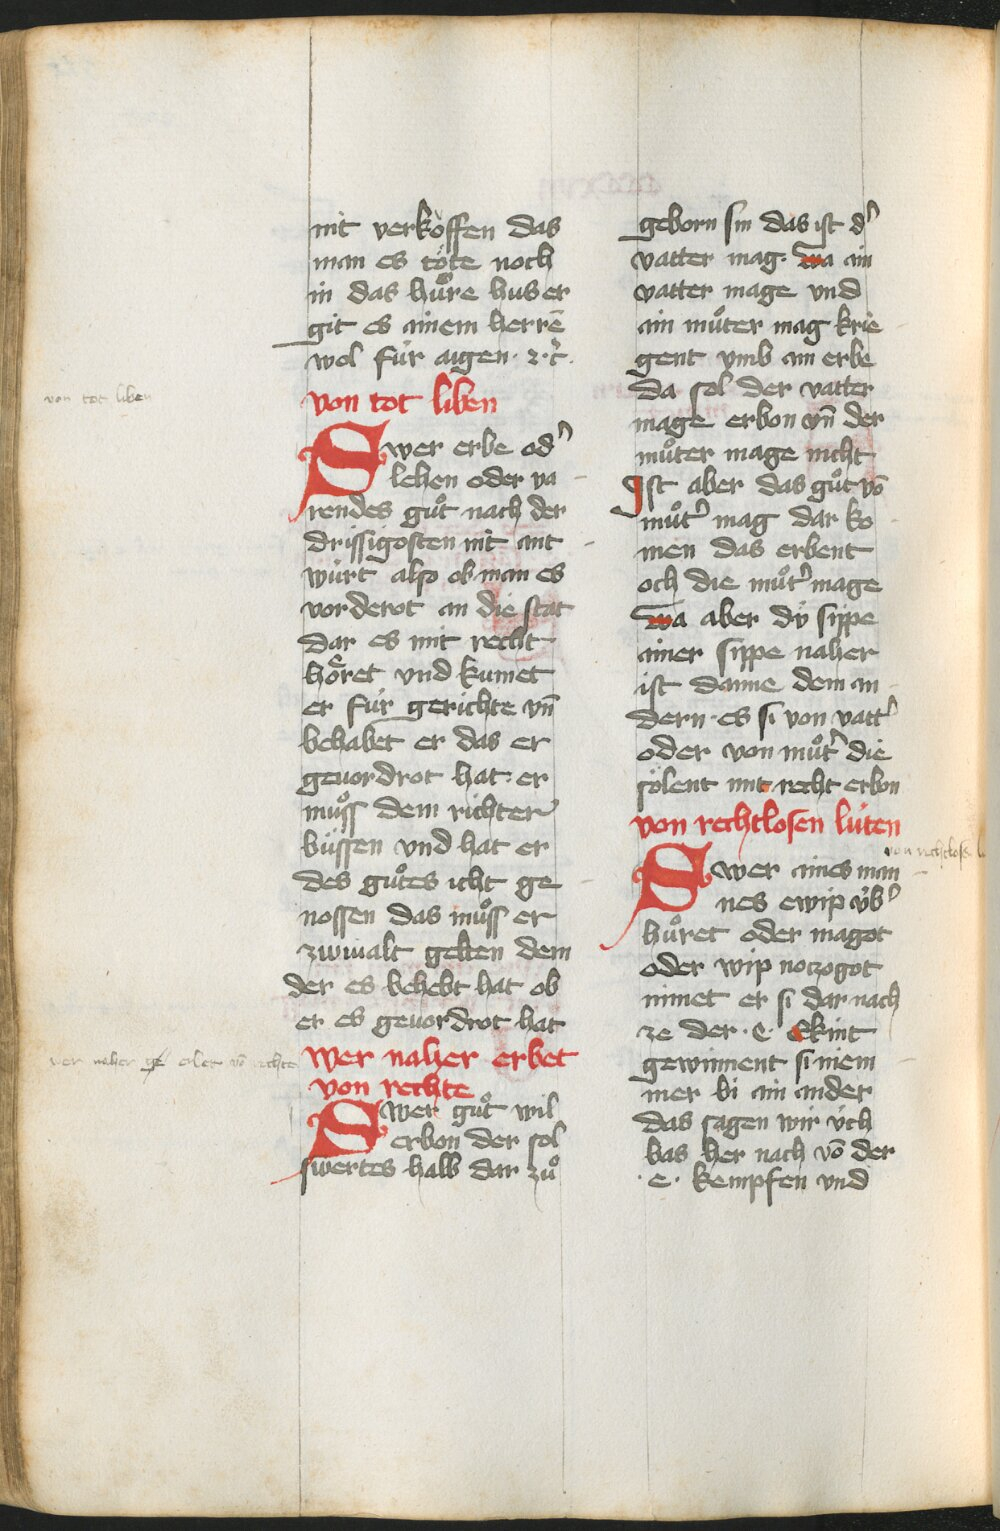 nit verkoͤffen das
man es toͤte noch
in das huͦre hus er
git es ainem herrē
wol fuͤr aigen · ꝛ · c̄ ·
von tot liben
von tot liben
Swer erbe od᷑
lehen oder va
rendes guͦt nach der
drissigosten nit ant
wuͤrt also ob man es
vorderot an die stat
dar es mit recht
hoͤret vnd kumet
er fuͤr gerichte vn̄
behabet er das er
geuordrot hat · er
muͦss dem richter
buͤssen vnd hat er
des guͦtes icht ge
nossen das muͦss er
zwiualt gelten dem
der es behebt hat ob
er es geuordrot hat
wer naher erbet vō rechte
wer naher erbet
von rechte
Swer guͦt wil
erbon der sol
swertes halb dar zuͦ
geborn sin das ist d᷑
vatter mag · wa ain
vatter mage vnd
ain muͦter mag krie
gent vmb ain erbe
da sol der vatter
mage erbon vn̄ der
muͦter mage nicht
Ist aber das guͦt vō
muͦt᷑ mag dar ko
men das erbent
och die muͦt᷑ mage
wa aber dÿ sippe
ainer sippe naher
ist danne dem an
dern · es si von vatt᷑
oder von muͦt᷑ die
soͤlent mit recht erbon
von rechtlosen luͤten
von rechtlose l
Swer aines man
nes ewip vͤb᷑
huͦret oder magot
oder wip notzogot
nimet er si dar nach
ze der · e · ekint
gewinnent si niem
mer bi ain ander
das sagen wir vͤch
bas her nach vō der
· e · kempfen vnd